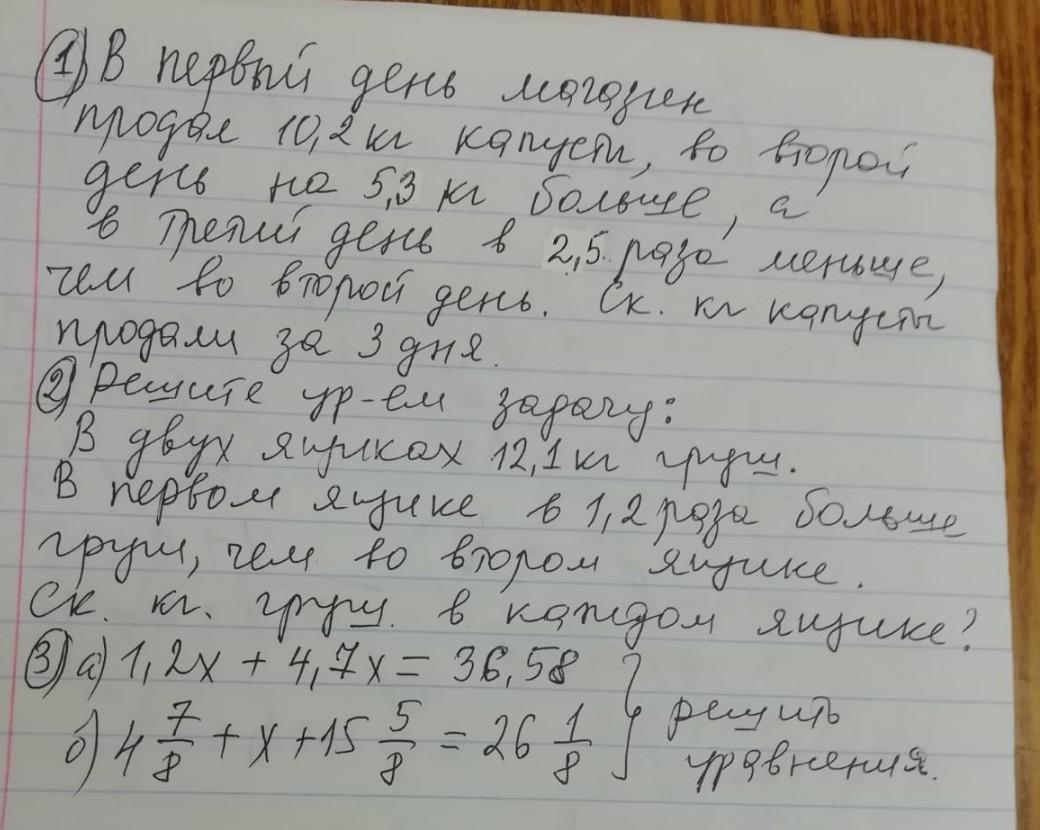 1) В первый день магазин
продал 10,2 кг капусты, во второй
день на 5,3 кг больше, а
в третий день в 2,5 раза меньше,
чем во второй день. Ск. кг капусты
продали за 3 дня.
2) Решите ур-ем задачу:
В двух ящиках 12,1 кг груш.
В первом ящике в 1,2 раза больше
груш, чем во втором ящике.
Ск. кг. груш в каждом ящике?
3) а) 1,2x + 4,7x = 36,58
б) 4 7/8 + x + 15 5/8 = 26 1/8
} решить
уравнения.